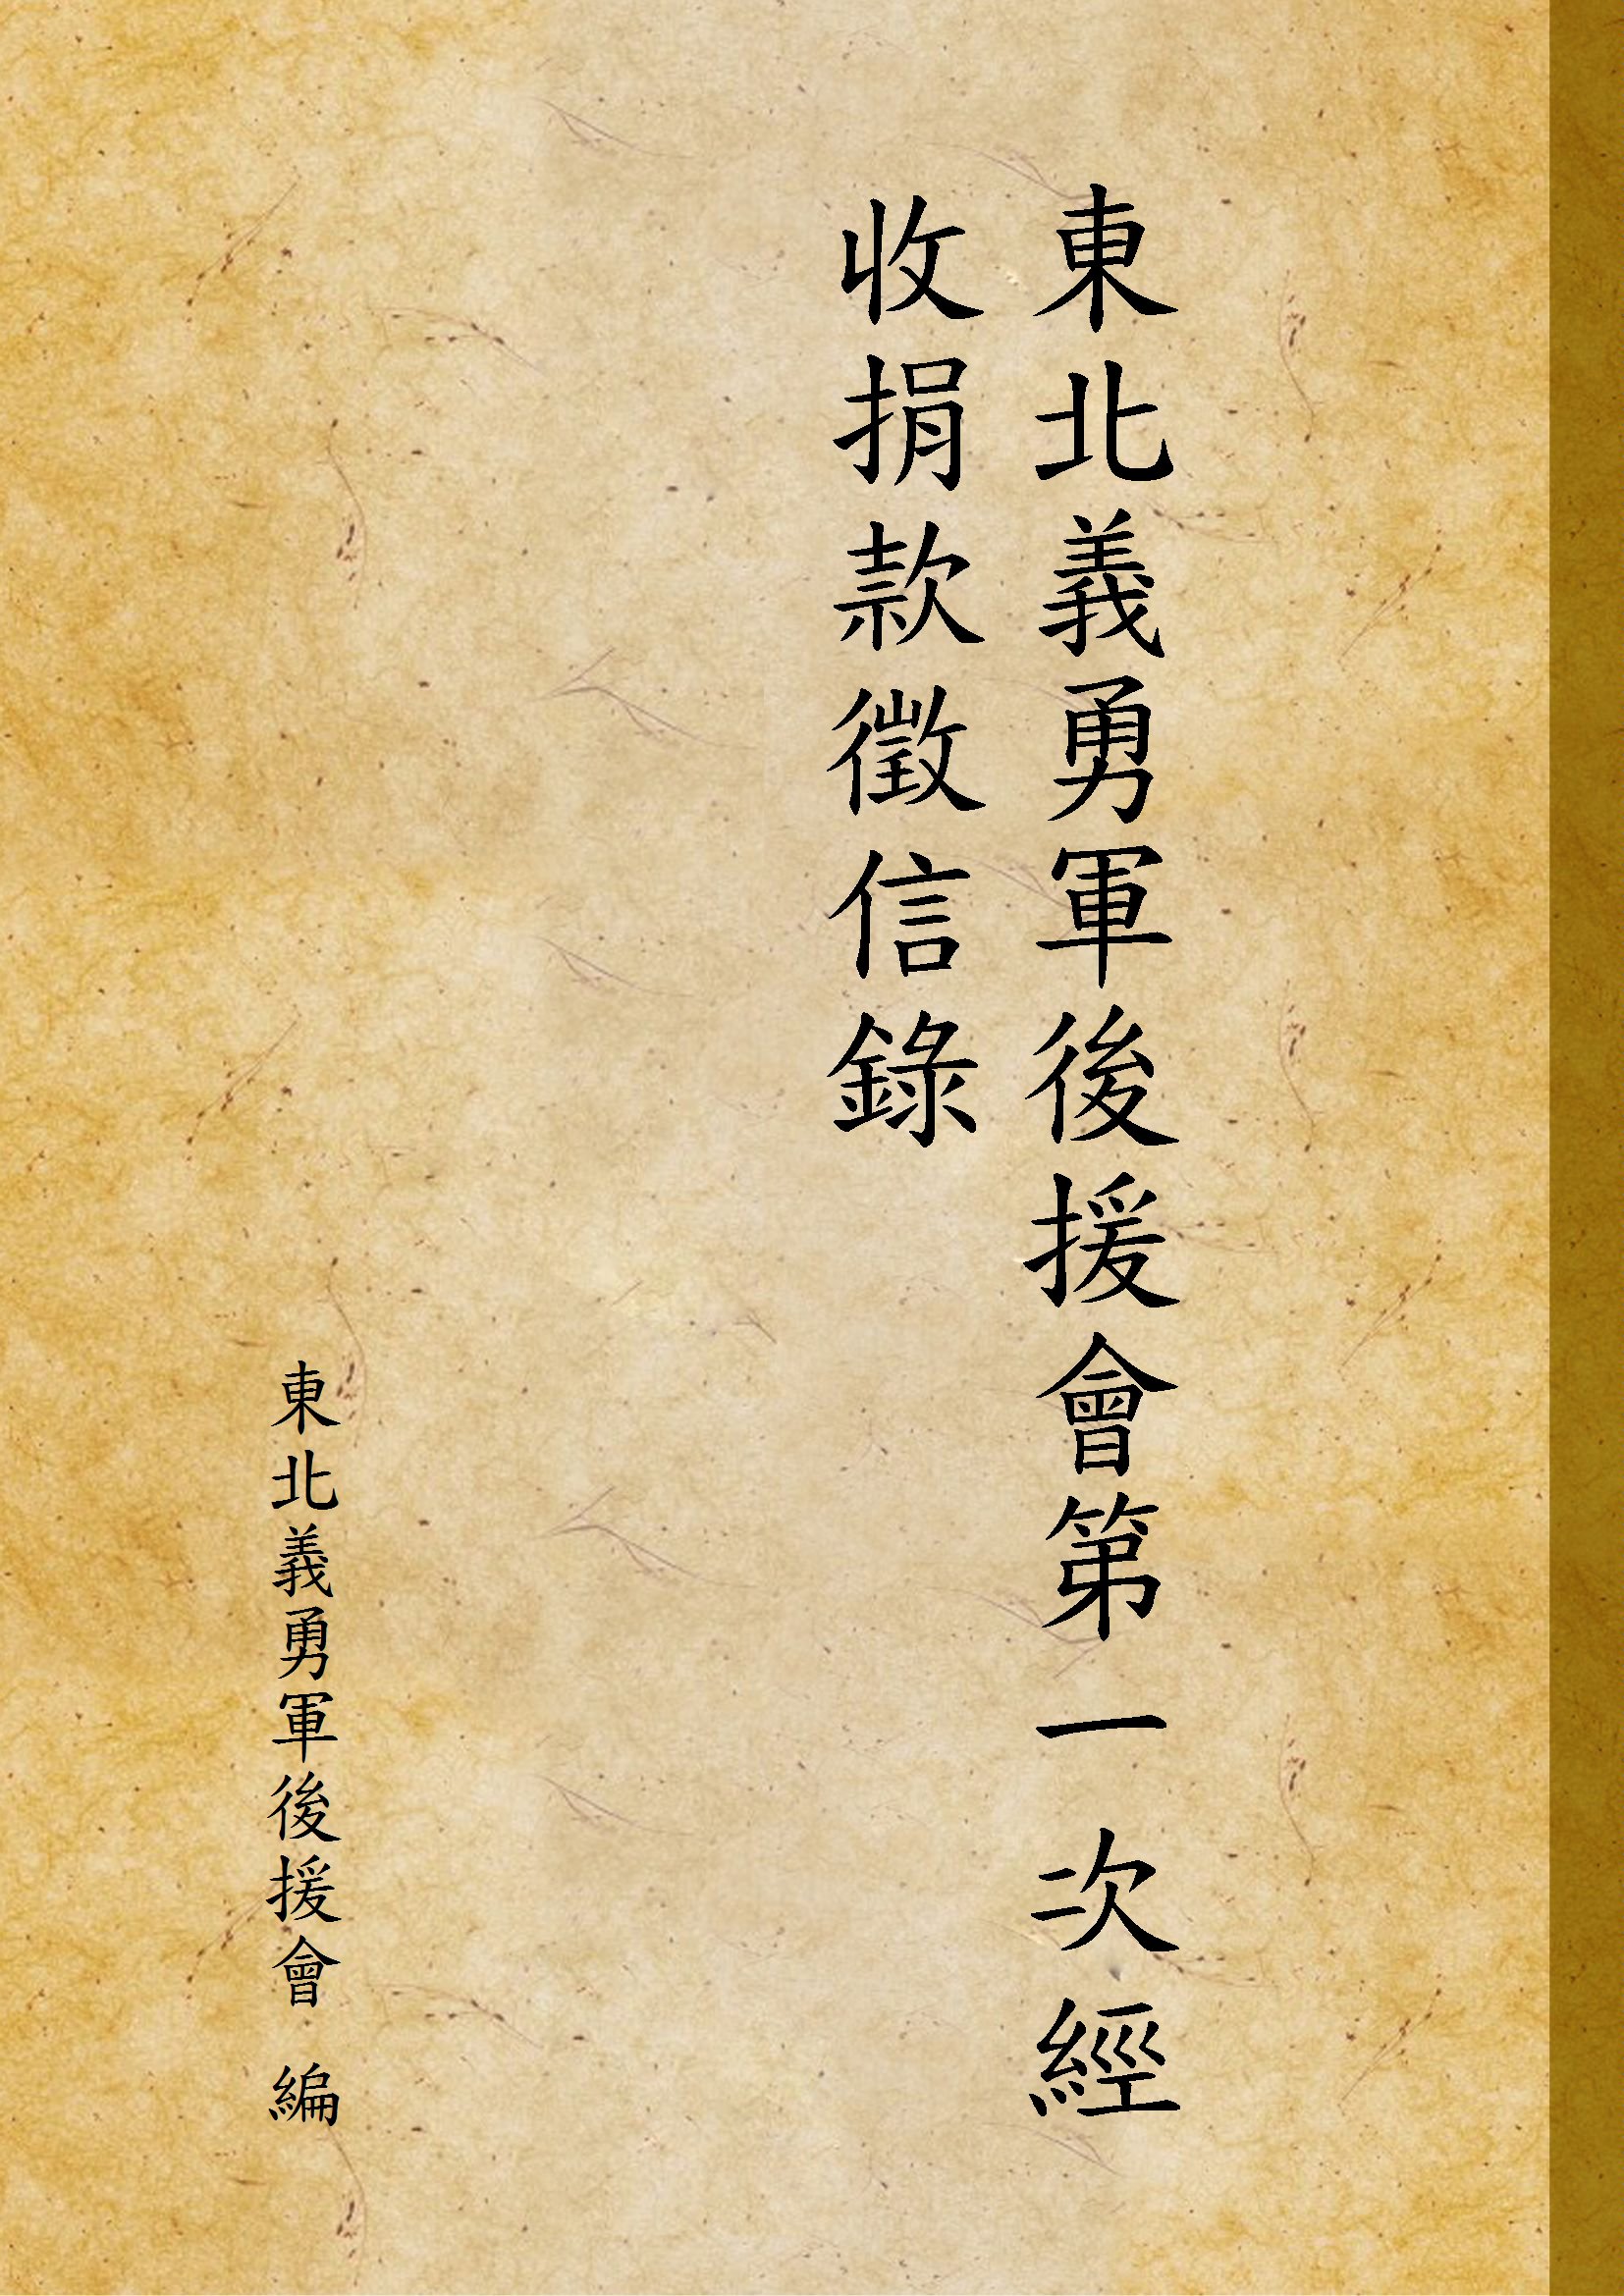 東北義勇軍後援會第一次經
收捐款徵信錄
東北義勇軍後援會 編